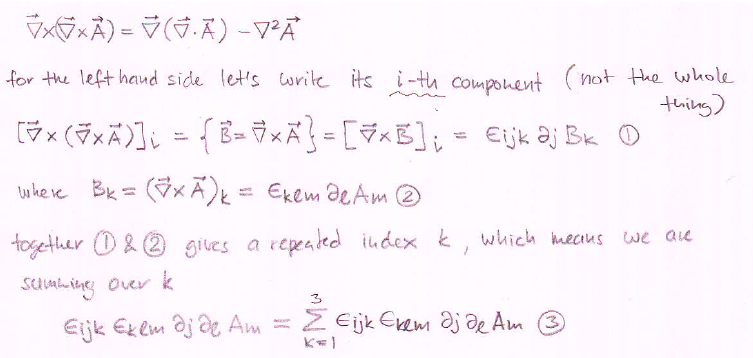 ∇⃗×(∇⃗×A⃗) = ∇⃗(∇⃗.A⃗) - ∇²A⃗
for the left hand side let's write its i-th component (not the whole thing)
[∇⃗×(∇⃗×A⃗)]i = {B⃗=∇⃗×A⃗} = [∇⃗×B⃗]i = Єijk ∂j Bk ①
where Bk = (∇⃗×A⃗)k = Єkem ∂e Am ②
together ① & ② gives a repeated index k, which means we are
summing over k
Єijk Єkem ∂j ∂e Am = 3∑k=1 Єijk Єkem ∂j ∂e Am ③